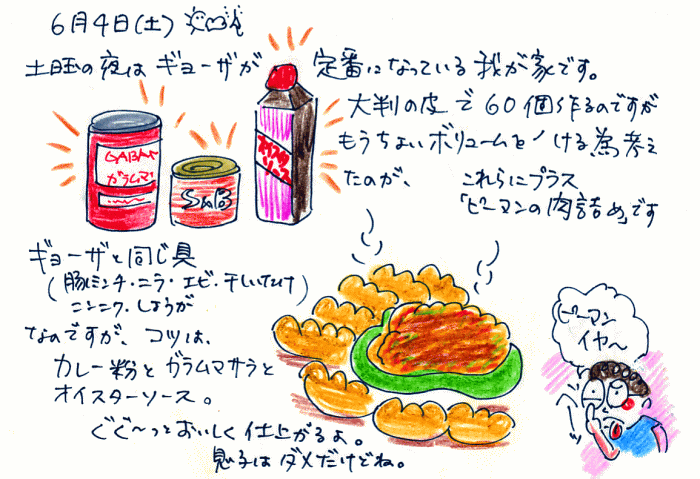 6月4日(土)
土曜の夜は ギョーザが 定番になっている 我が家です。
大判の皮で 60個作るのですが
もうちょいボリュームをつける為考え
たのが、 これらにプラス
「ピーマンの肉詰め」です
GABAN
ガラムマ
S&B
オイスターソース
ギョーザと同じ具
(豚ミンチ・ニラ・エビ・干しいたけ
ニンニク・しょうが)
なのですが、コツは、
カレー粉とガラムマサラと
オイスターソース。
ぐぐ〜っとおいしく仕上がるよ。
息子はダメだけどね。
ピーマン
イヤ〜